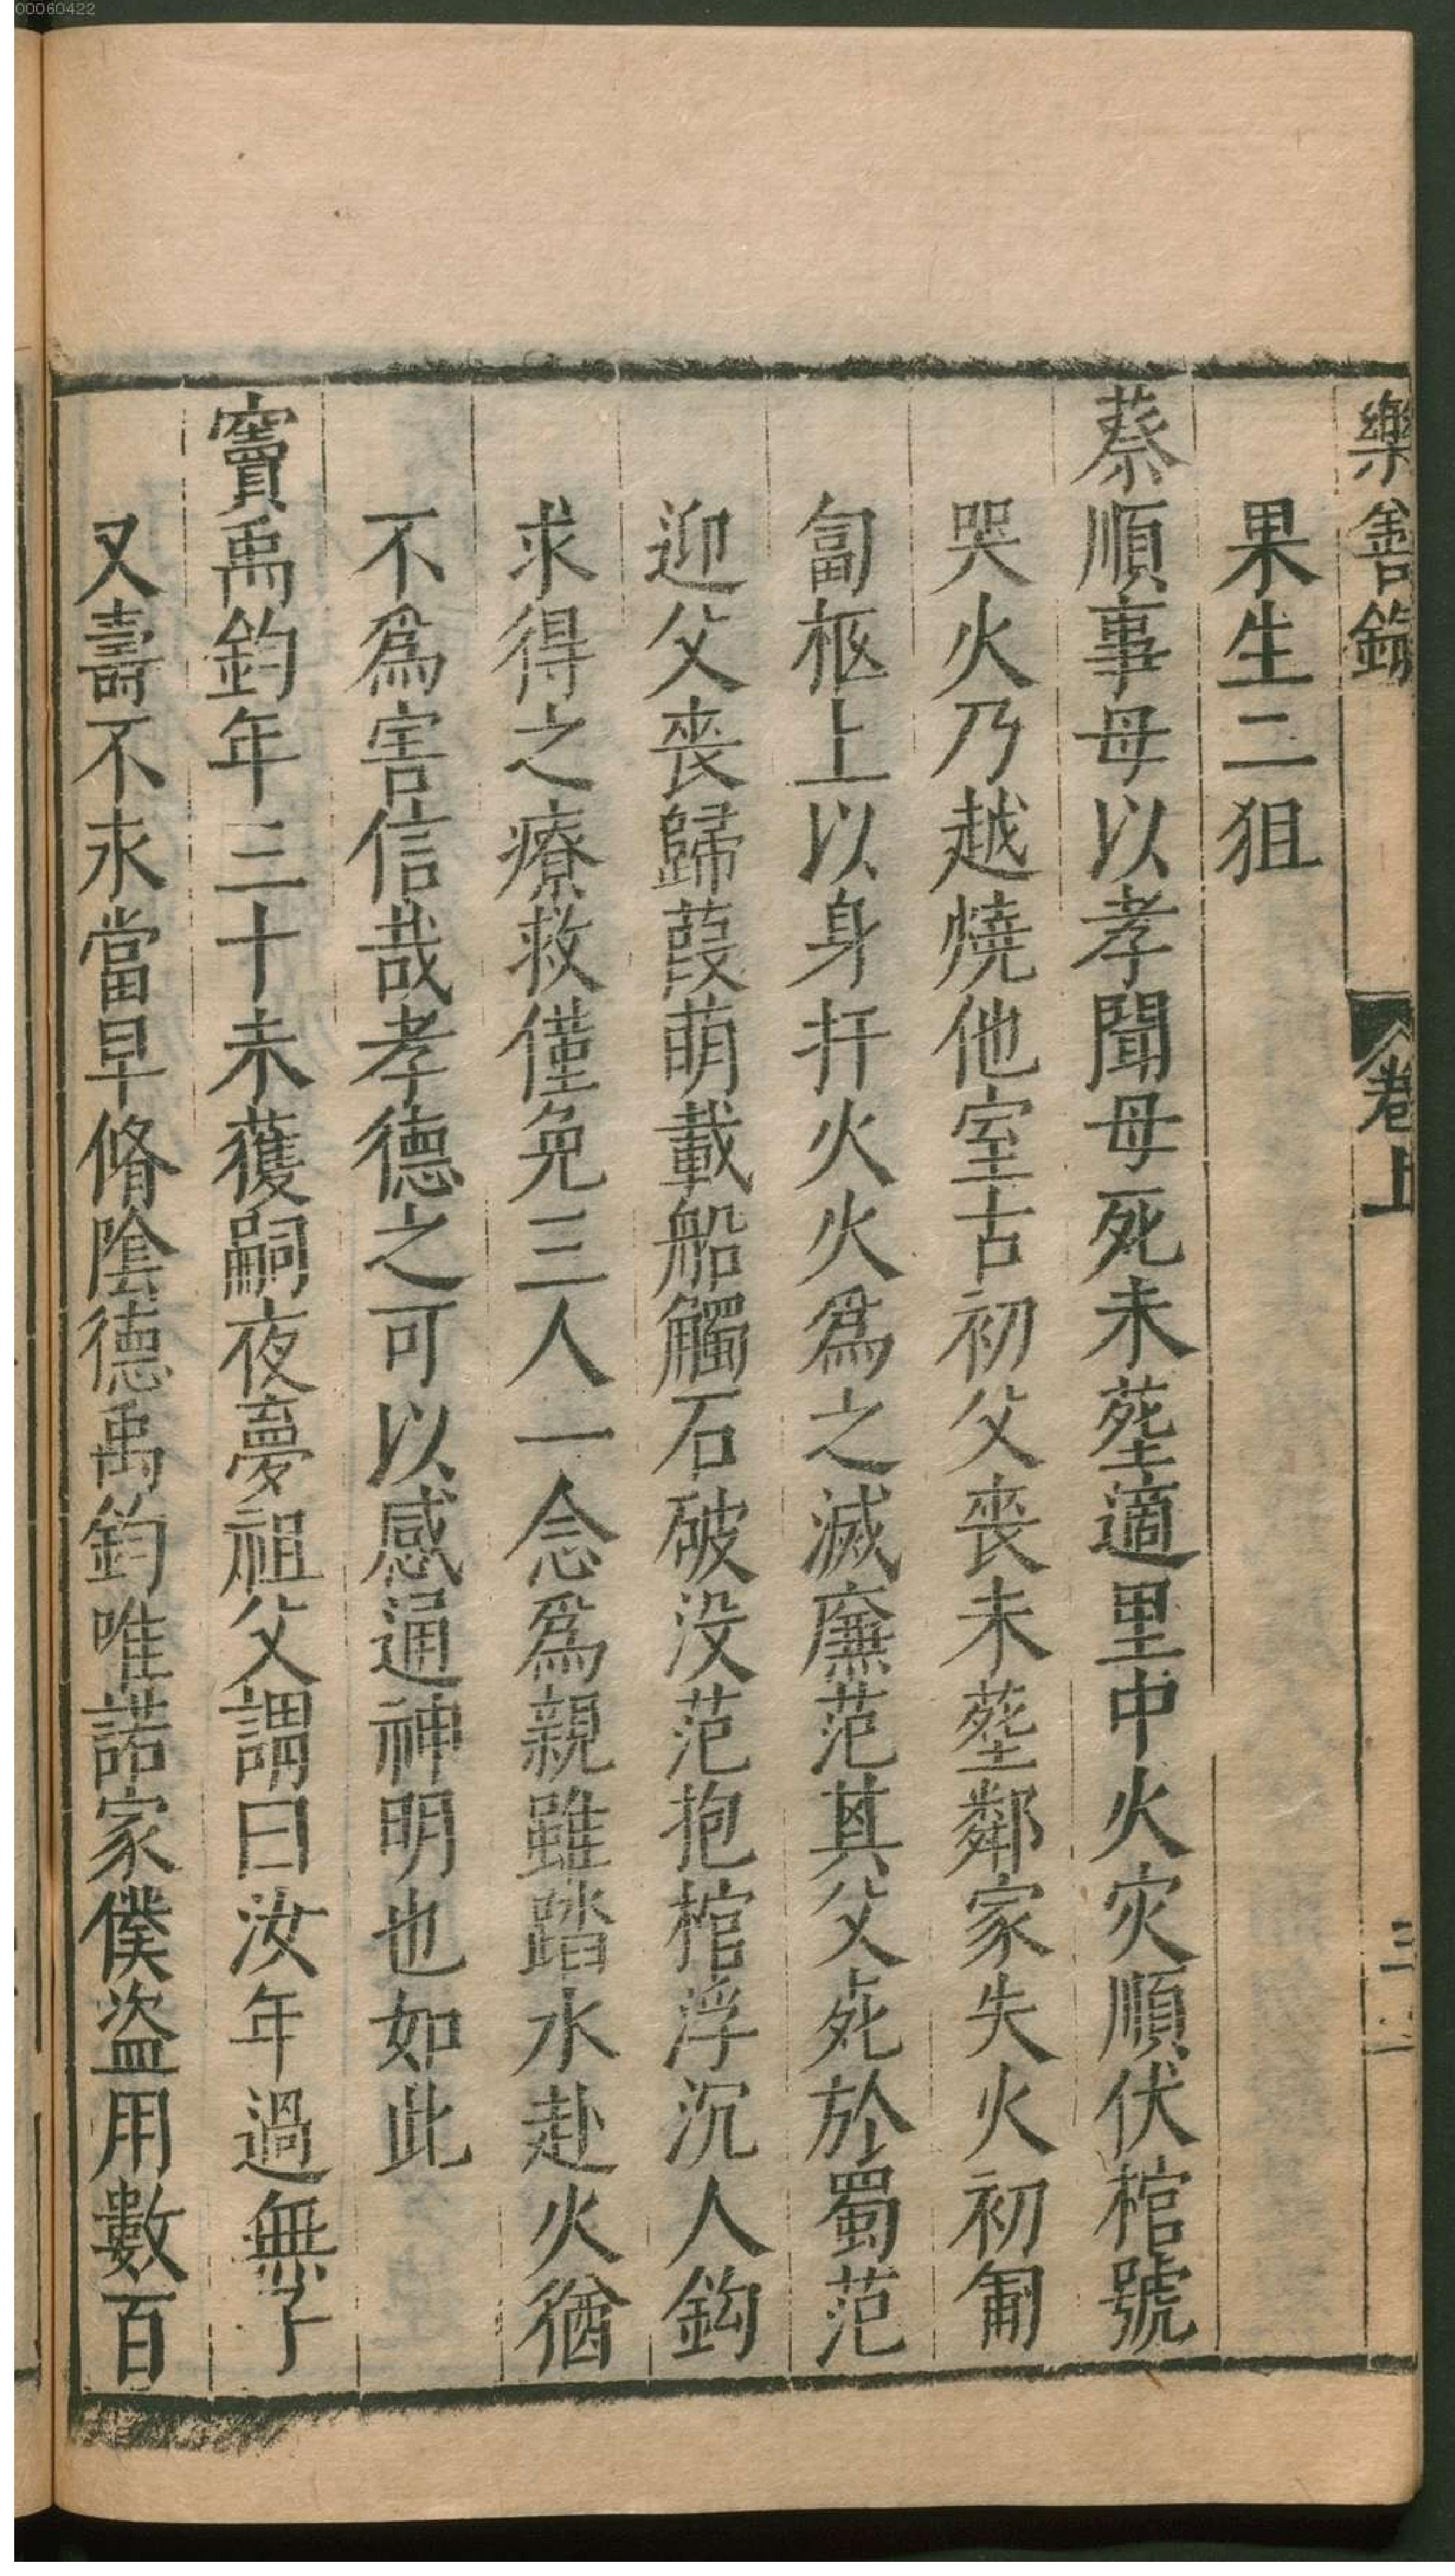 00060422
樂善錄 卷上 三
果生二狙
蔡順事母以孝聞母死未塟適里中火灾順伏棺號
哭火乃越燒他室古初父喪未塟鄰家失火初匍
匐柩上以身扞火火為之滅廉范其父死於蜀范
迎父喪歸葭萌載船觸石破没范抱棺浮沉人鈎
求得之療救僅免三人一念為親雖踏水赴火猶
不為害信哉孝德之可以感通神明也如此
竇禹鈞年三十未獲嗣夜夢祖父謂曰汝年過無子
又壽不永當早脩陰德禹鈞唯諾家僕盗用數百